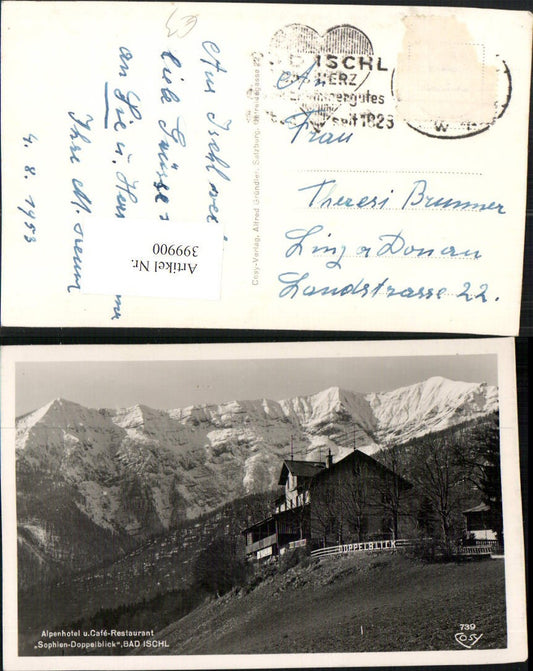 Aus Ischl viele
liebe Grüsse
an Sie u. Herrn
Ihre M.
4. 8. 1953
Artikel Nr.
399900
Cosy-Verlag, Alfred Gründler, Salzburg, Getreidegasse 22
BAD ISCHL
HERZ
seit 1823
An
Frau
Theresi Brunner
Linz a Donau
Landstrasse 22.
DOPPELBLICK
Alpenhotel u.Café-Restaurant
„Sophien-Doppelblick“, BAD ISCHL
739
COSY